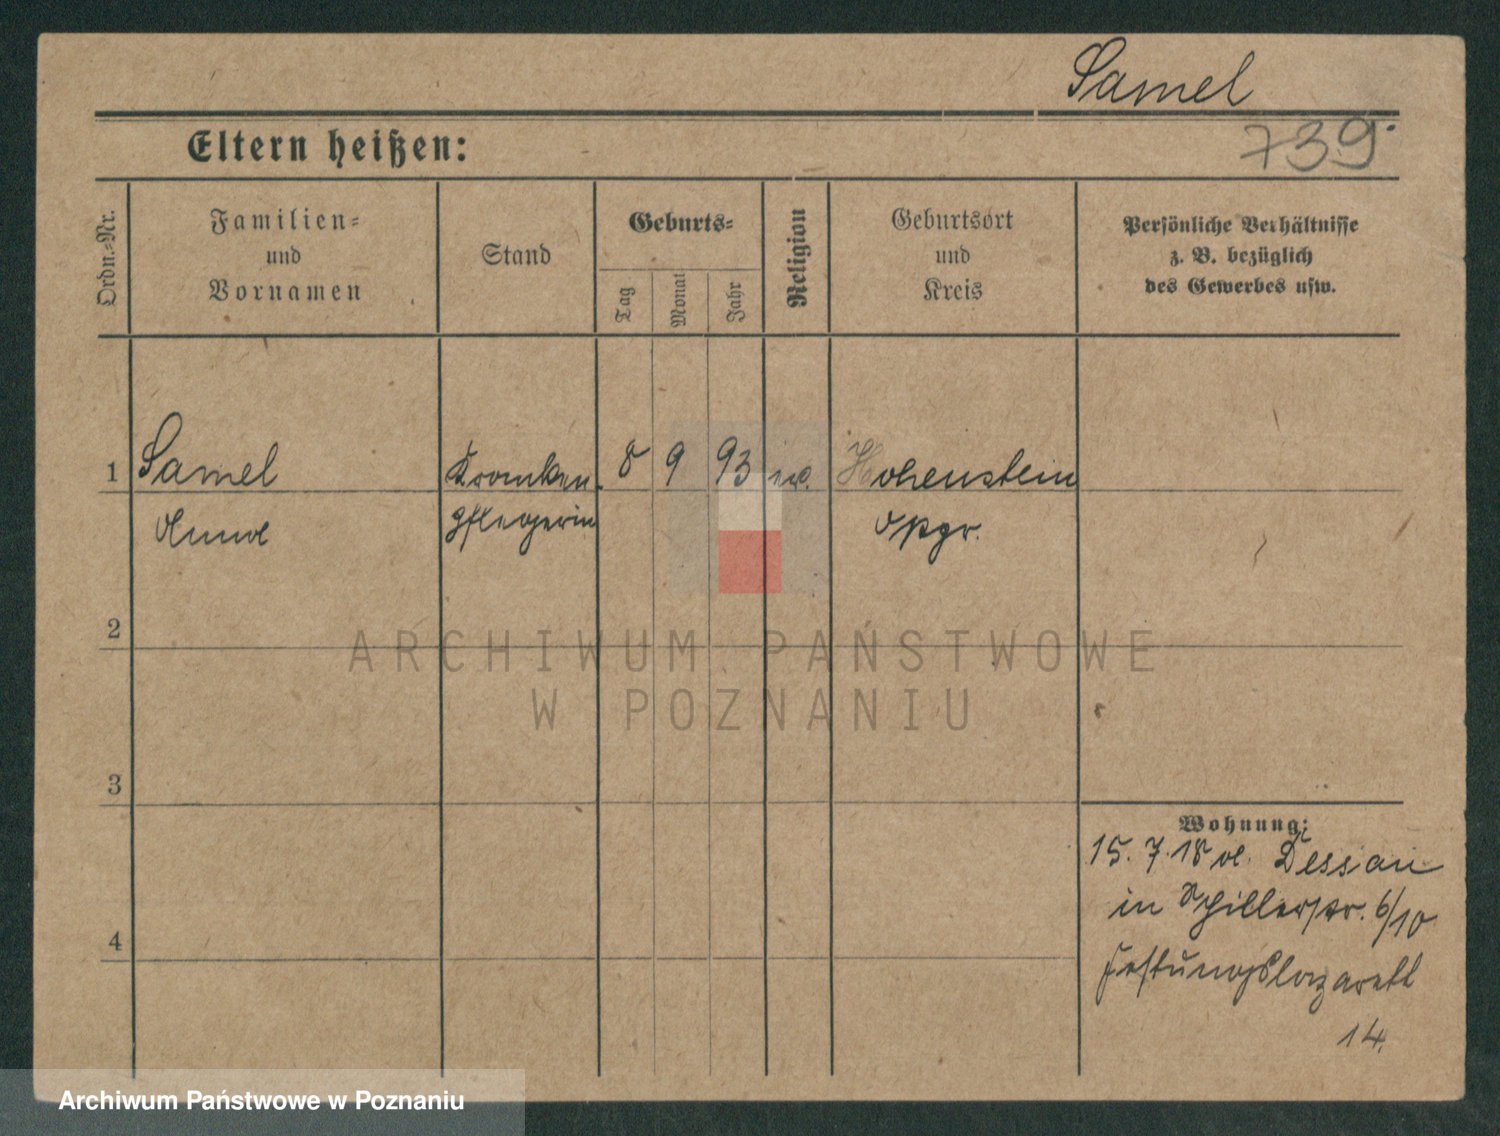 Samel
739.
Eltern heißen:
Ordn.-Nr.
Familien-
und
Vornamen
Stand
Geburts-
Tag
Monat
Jahr
Religion
Geburtsort
und
Kreis
Persönliche Verhältnisse
z. B. bezüglich
des Gewerbes usw.
1 Samel Kranken- 8 9 93 ev. Hohenstein
Anna pflegerin Ospr.
2
ARCHIWUM PAŃSTWOWE
W POZNANIU
3
Wohnung:
15. 7. 18 a. Dessau
in Schillerstr. 6/10
4
Festungslazarett
14.
Archiwum Państwowe w Poznaniu